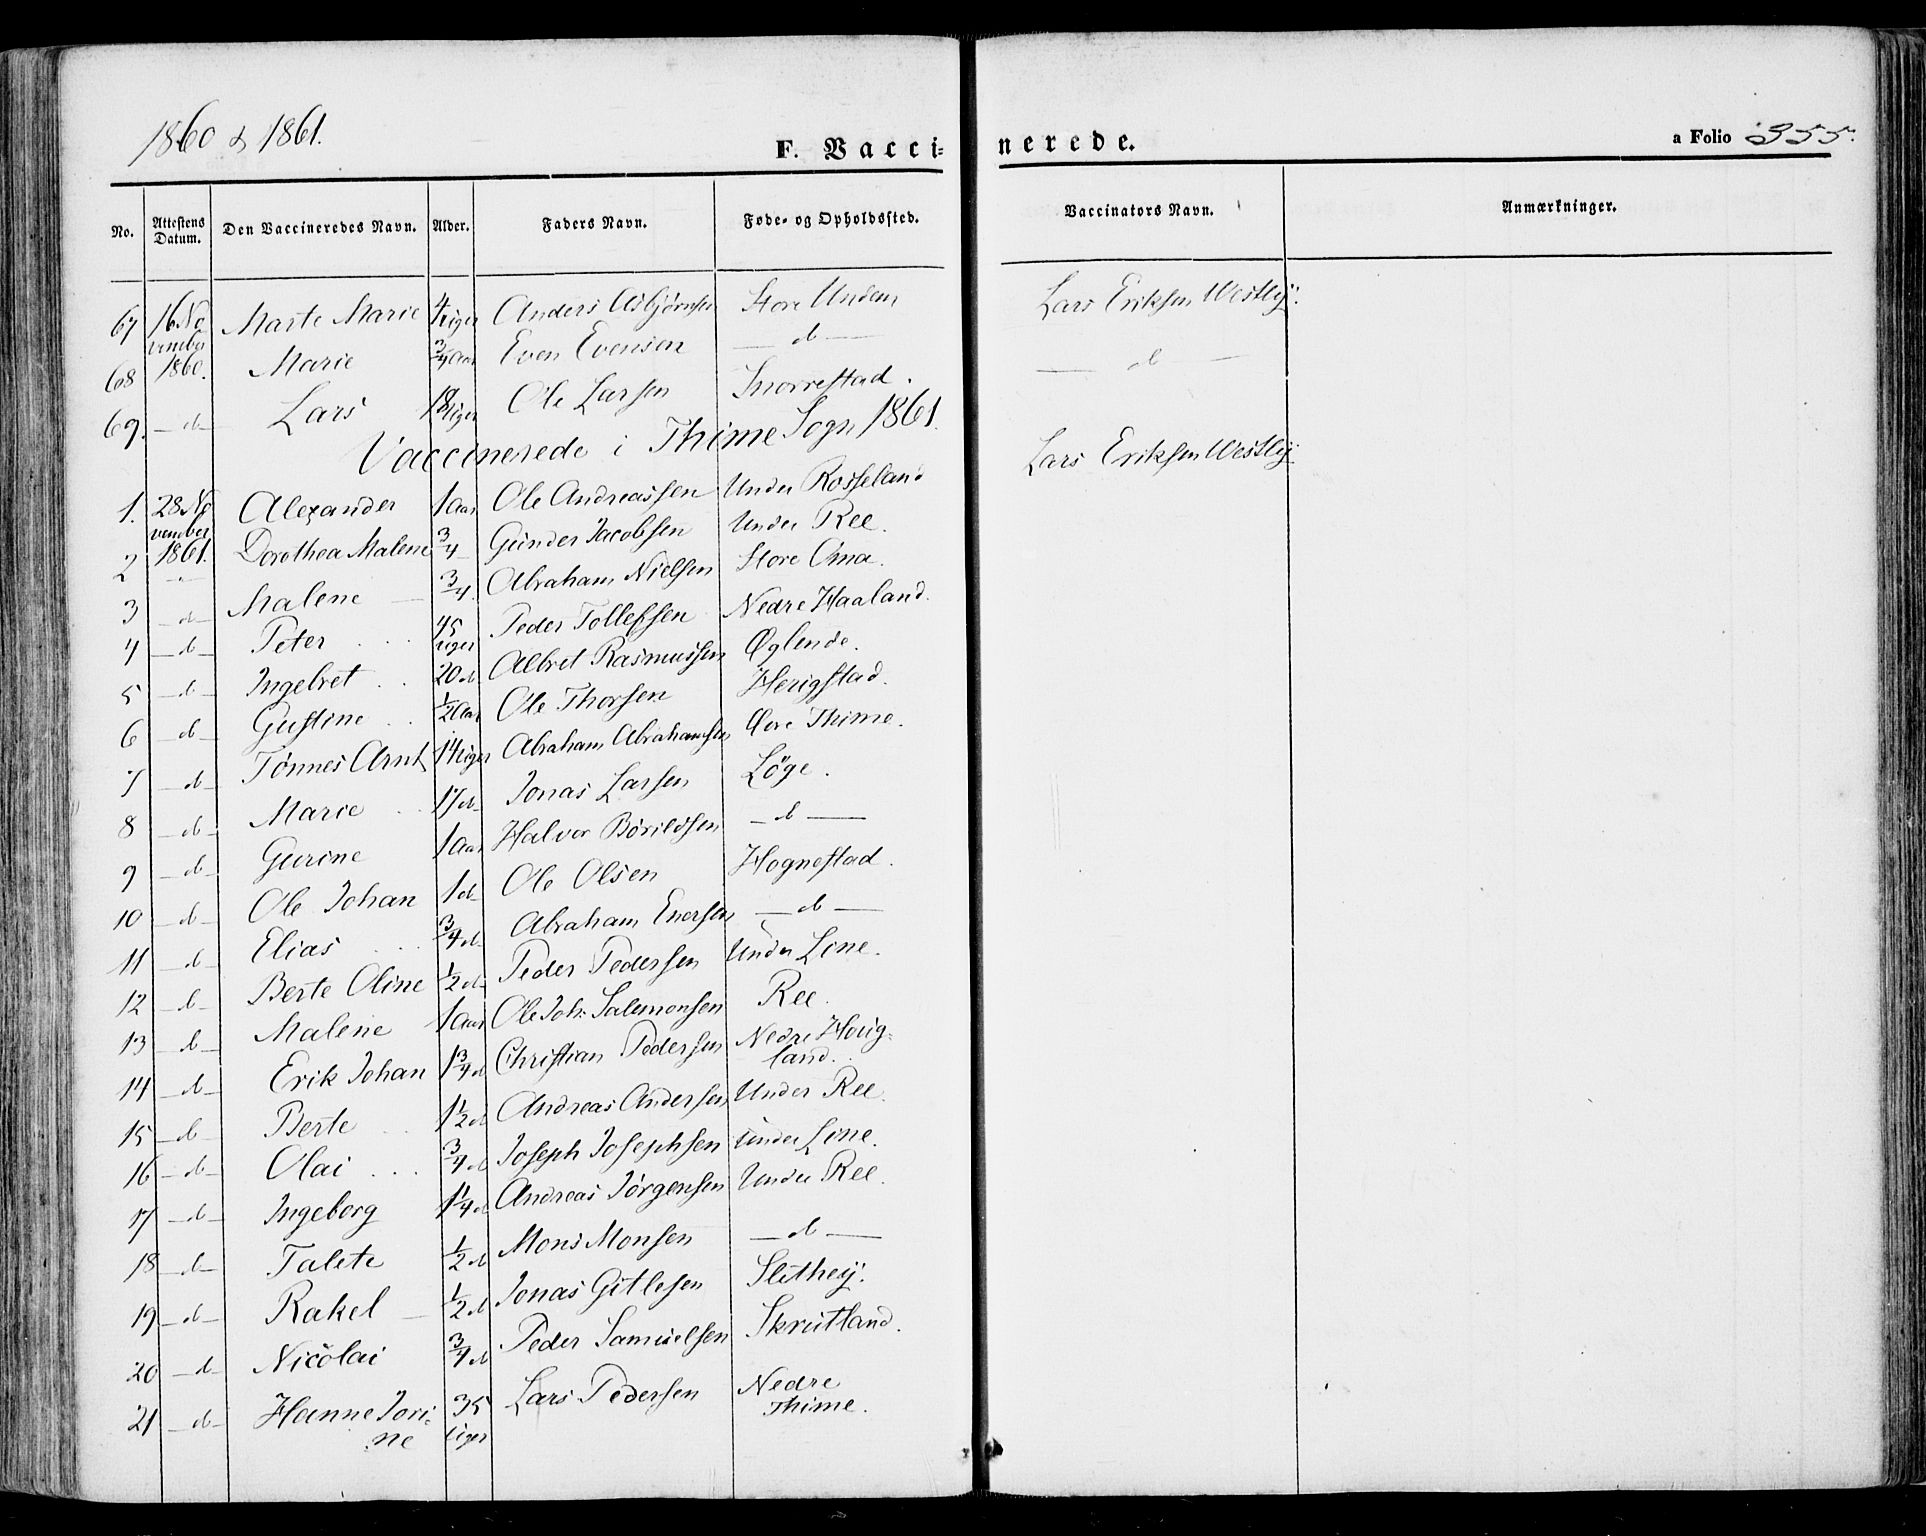 1860 & 1861.
F. Vacci-
nerede.
a Folio 355.
No. Attestens Datum. Den Vaccineredes Navn. Alder. Faders Navn. Føde- og Opholdssted. Vaccinators Navn. Anmærkninger.
67 16 No Marte Marie 4/Uger Anders Asbjørnsen Store Undem Lars Eriksen Westly.
vember
68 1860. Marie 3/4 Aar Even Evensen — d — — d —
69. — d — Lars 18 Uger Ole Larsen Snorrestad.
Vaccinerede i Thime Sogn 1861.
1. 28 No Alexander 1 Aar Ole Andreassen Under Rosseland Lars Eriksen Westly
vember
2 1861. Dorothea Malene 3/4 — Gunder Jacobsen Under Ree.
3 — d — Malene — 3/4. Abraham Nielsen Store Oma.
4 — d — Peter 45 Uger Peder Tollefsen Nedre Haaland.
5 — d — Ingebret 20 d Albret Rasmussen Øglende.
6 — d — Gustine 1/2 Aar Ole Thorsen Herigstad.
7 — d — Tønnes Arnt 14 Uger Abraham Abrahamsen Øvre Thime.
8 — d — Marie 17 d Jonas Larsen Løge.
9 — d — Gurine 1 Aar Halvor Børildsen — d —
10 — d — Ole Johan 1 d Ole Olsen Hognestad.
11 — d — Elias 3/4 d Abraham Enersen — d —
12 — d — Berte Oline 1/2 d Peder Pedersen Under Line.
13 — d — Malene 1 Aar Ole Joh: Salemonsen Ree.
14 — d — Erik Johan 1 3/4 d Christian Pedersen Nedre Houg-
land.
15 — d — Berte 1 1/2 d Andreas Andersen Under Ree.
16 — d — Olai 3/4 d Joseph Josephsen Under Line.
17 — d — Ingeborg 1 1/4 d Andreas Jørgensen Under Ree.
18 — d — Talete 1/2 d Mons Monsen — d —
19 — d — Rakel — 1/2 d Jonas Gitlesen Slethey.
20 — d — Nicolai 3/4 d Peder Samuelsen Skrutland.
21 — d — Hanne Jori- 35 Lars Pedersen Nedre
ne Uger Thime.